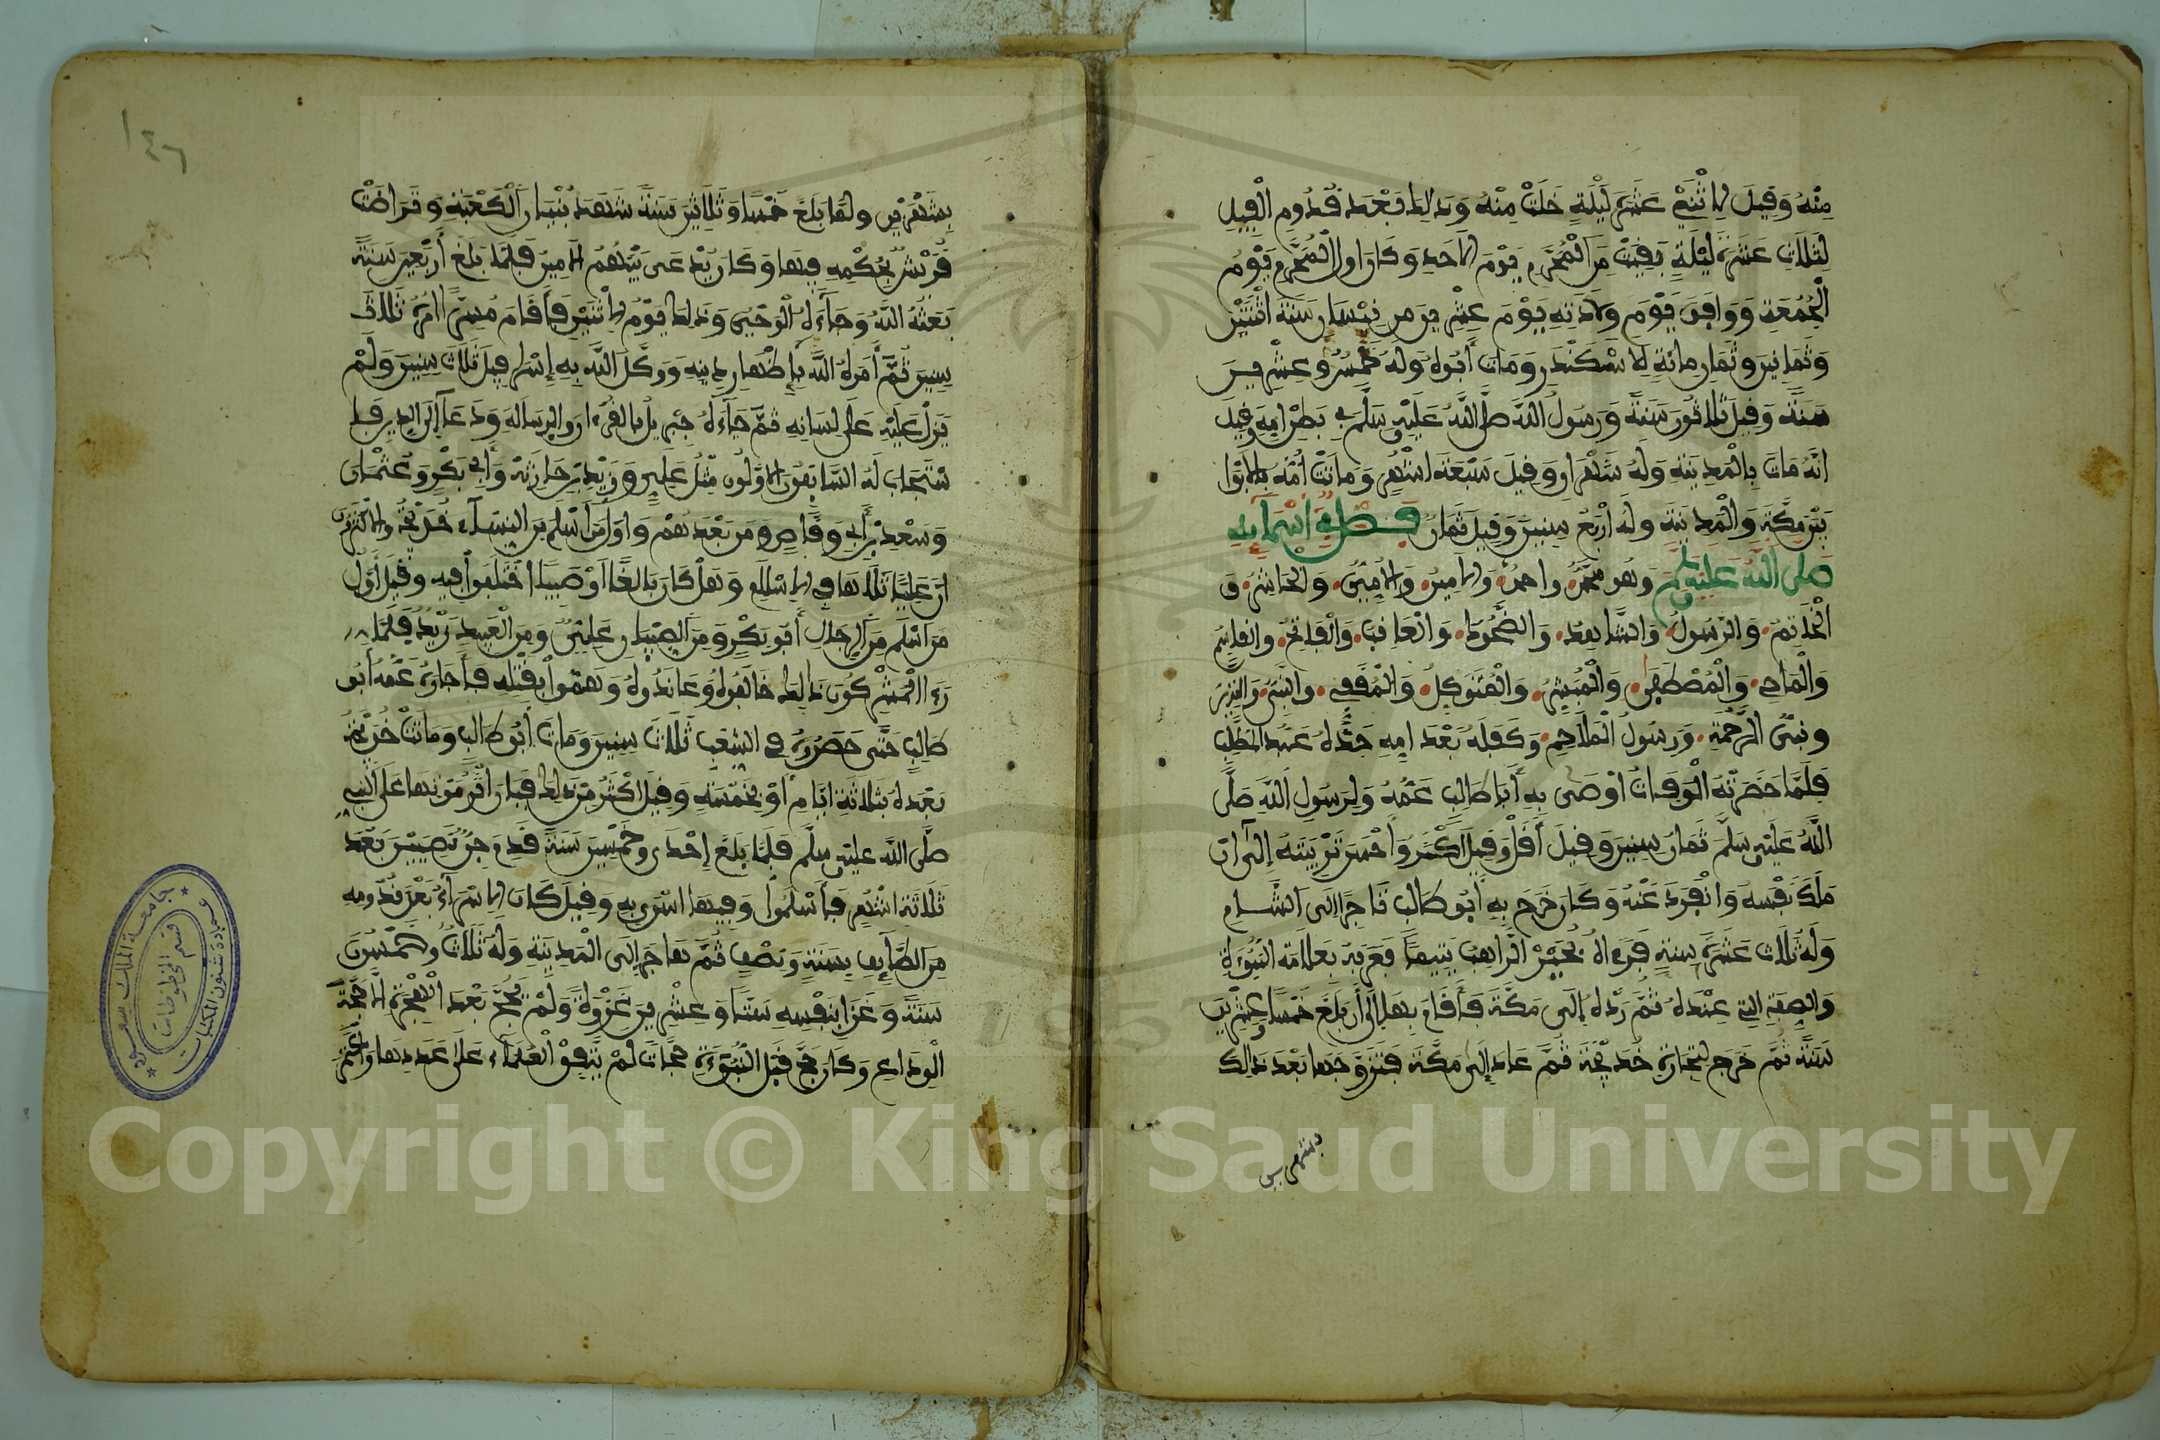 منه وقيل لاثنتي عشرة ليلة خلت منه وذلك بعد قدوم الفيل
لثلاث عشرة ليلة بقيت من المحرم يوم الاحد وكان اول المحرم يوم
الجمعة ووافق يوم ولادته يوم عشرين من نيسان سنة اثنتين
وثمانين وثمان مائة للاسكندر ومات أبوه وله خمس وعشرين
سنة وقيل ثلاثون سنة ورسول الله صلى الله عليه وسلم في بطن امه وقيل
انه مات بالمدينة وله شهران وقيل سبعة اشهر وماتت أمه بالابوا
بين مكة والمدينة وله أربع سنين وقيل ثمان فصل في اسمايه
صلى الله عليه وسلم وهو محمد واحمد والامين والامي والحاشر و
الخاتم والرسول والشاهد والضحوك والعاقب والفاتح والقاسم
والماحي والمصطفى والمبشر والمتوكل والمقفي والنبي والنذير
ونبي الرحمة ورسول الملاحم وكفله بعد امه جده عبد المطلب
فلما حضرته الوفاة اوصى به أبا طالب عمه ولرسول الله صلى
الله عليه وسلم ثمان سنين وقيل أقل وقيل اكثر وأحسن تربيته إلى ان
ملك نفسه وانفرد عنه وكان خرج به أبو طالب تاجرا إلى الشام
وله ثلاث عشرة سنة فرءاه بحير الراهب بتيما فعرفه بعلامة النبوءة
والصفة التي عنده ثم رده إلى مكة فأقام بها إلى أن بلغ خمسا وعشرين
سنة ثم خرج لتجارة خديجة ثم عاد إلى مكة فتزوجها بعد ذلك
بشهرين
١٤٦
بشهرين ولما بلغ خمسا وثلاثين سنة شهد بنيان الكعبة وتراضت
قريش بحكمه فيها وكان يدعى بينهم الامين فلما بلغ أربعين سنة
بعثه الله وجاءه الوحي وذلك يوم الاثنين فأقام مسرا امره ثلاث
سنين ثم أمره الله بإظهار دينه ووكل الله به إسرافيل ثلاث سنين ولم
ينزل عليه على لسانه ثم جاءه جبريل بالقرءان والرسالة ودعا إلى الدين فا
ستجاب له السابقون الاولون مثل علي وزيد بن حارثة وأبي بكر وعثمان
وسعد بن أبي وقاص ومن بعدهم واول من أسلم من النساء خديجة والاكثرون
ان عليا تلاها في الاسلام وهل كان بالغا او صبيا اختلفوا فيه وقيل أول
من اسلم من الرجال أبو بكر ومن الصبيان علي ومن العبيد زيد فلما
رءا المشركون ذلك خالفوه وعاندوه وهموا بقتله فأجاره عمه أبو
طالب حتى حصروه في الشعب ثلاث سنين ومات أبو طالب وماتت خديجة
بعده بثلاثة ايام أو بخمسة وقيل اكثر من ذلك فبان اثر موتها على النبي
صلى الله عليه وسلم فلما بلغ إحدى وخمسين سنة قدم جن نصيبين بعد
ثلاثة اشهر فأسلموا وفيها اسري به وقيل كان الاسراء بعد قدومه
من الطايف بسنة ونصف ثم هاجر إلى المدينة وله ثلاث وخمسون
سنة وغزا بنفسه ستا وعشرين غزوة ولم يحج بعد الهجرة إلا حجة
الوداع وكان حج قبل النبوءة حجات لم يتفق العلماء على عددها واعتمر
جامعة الملك سعود
عمادة شئون المكتبات
قسم المخطوطات
Copyright © King Saud University
1957